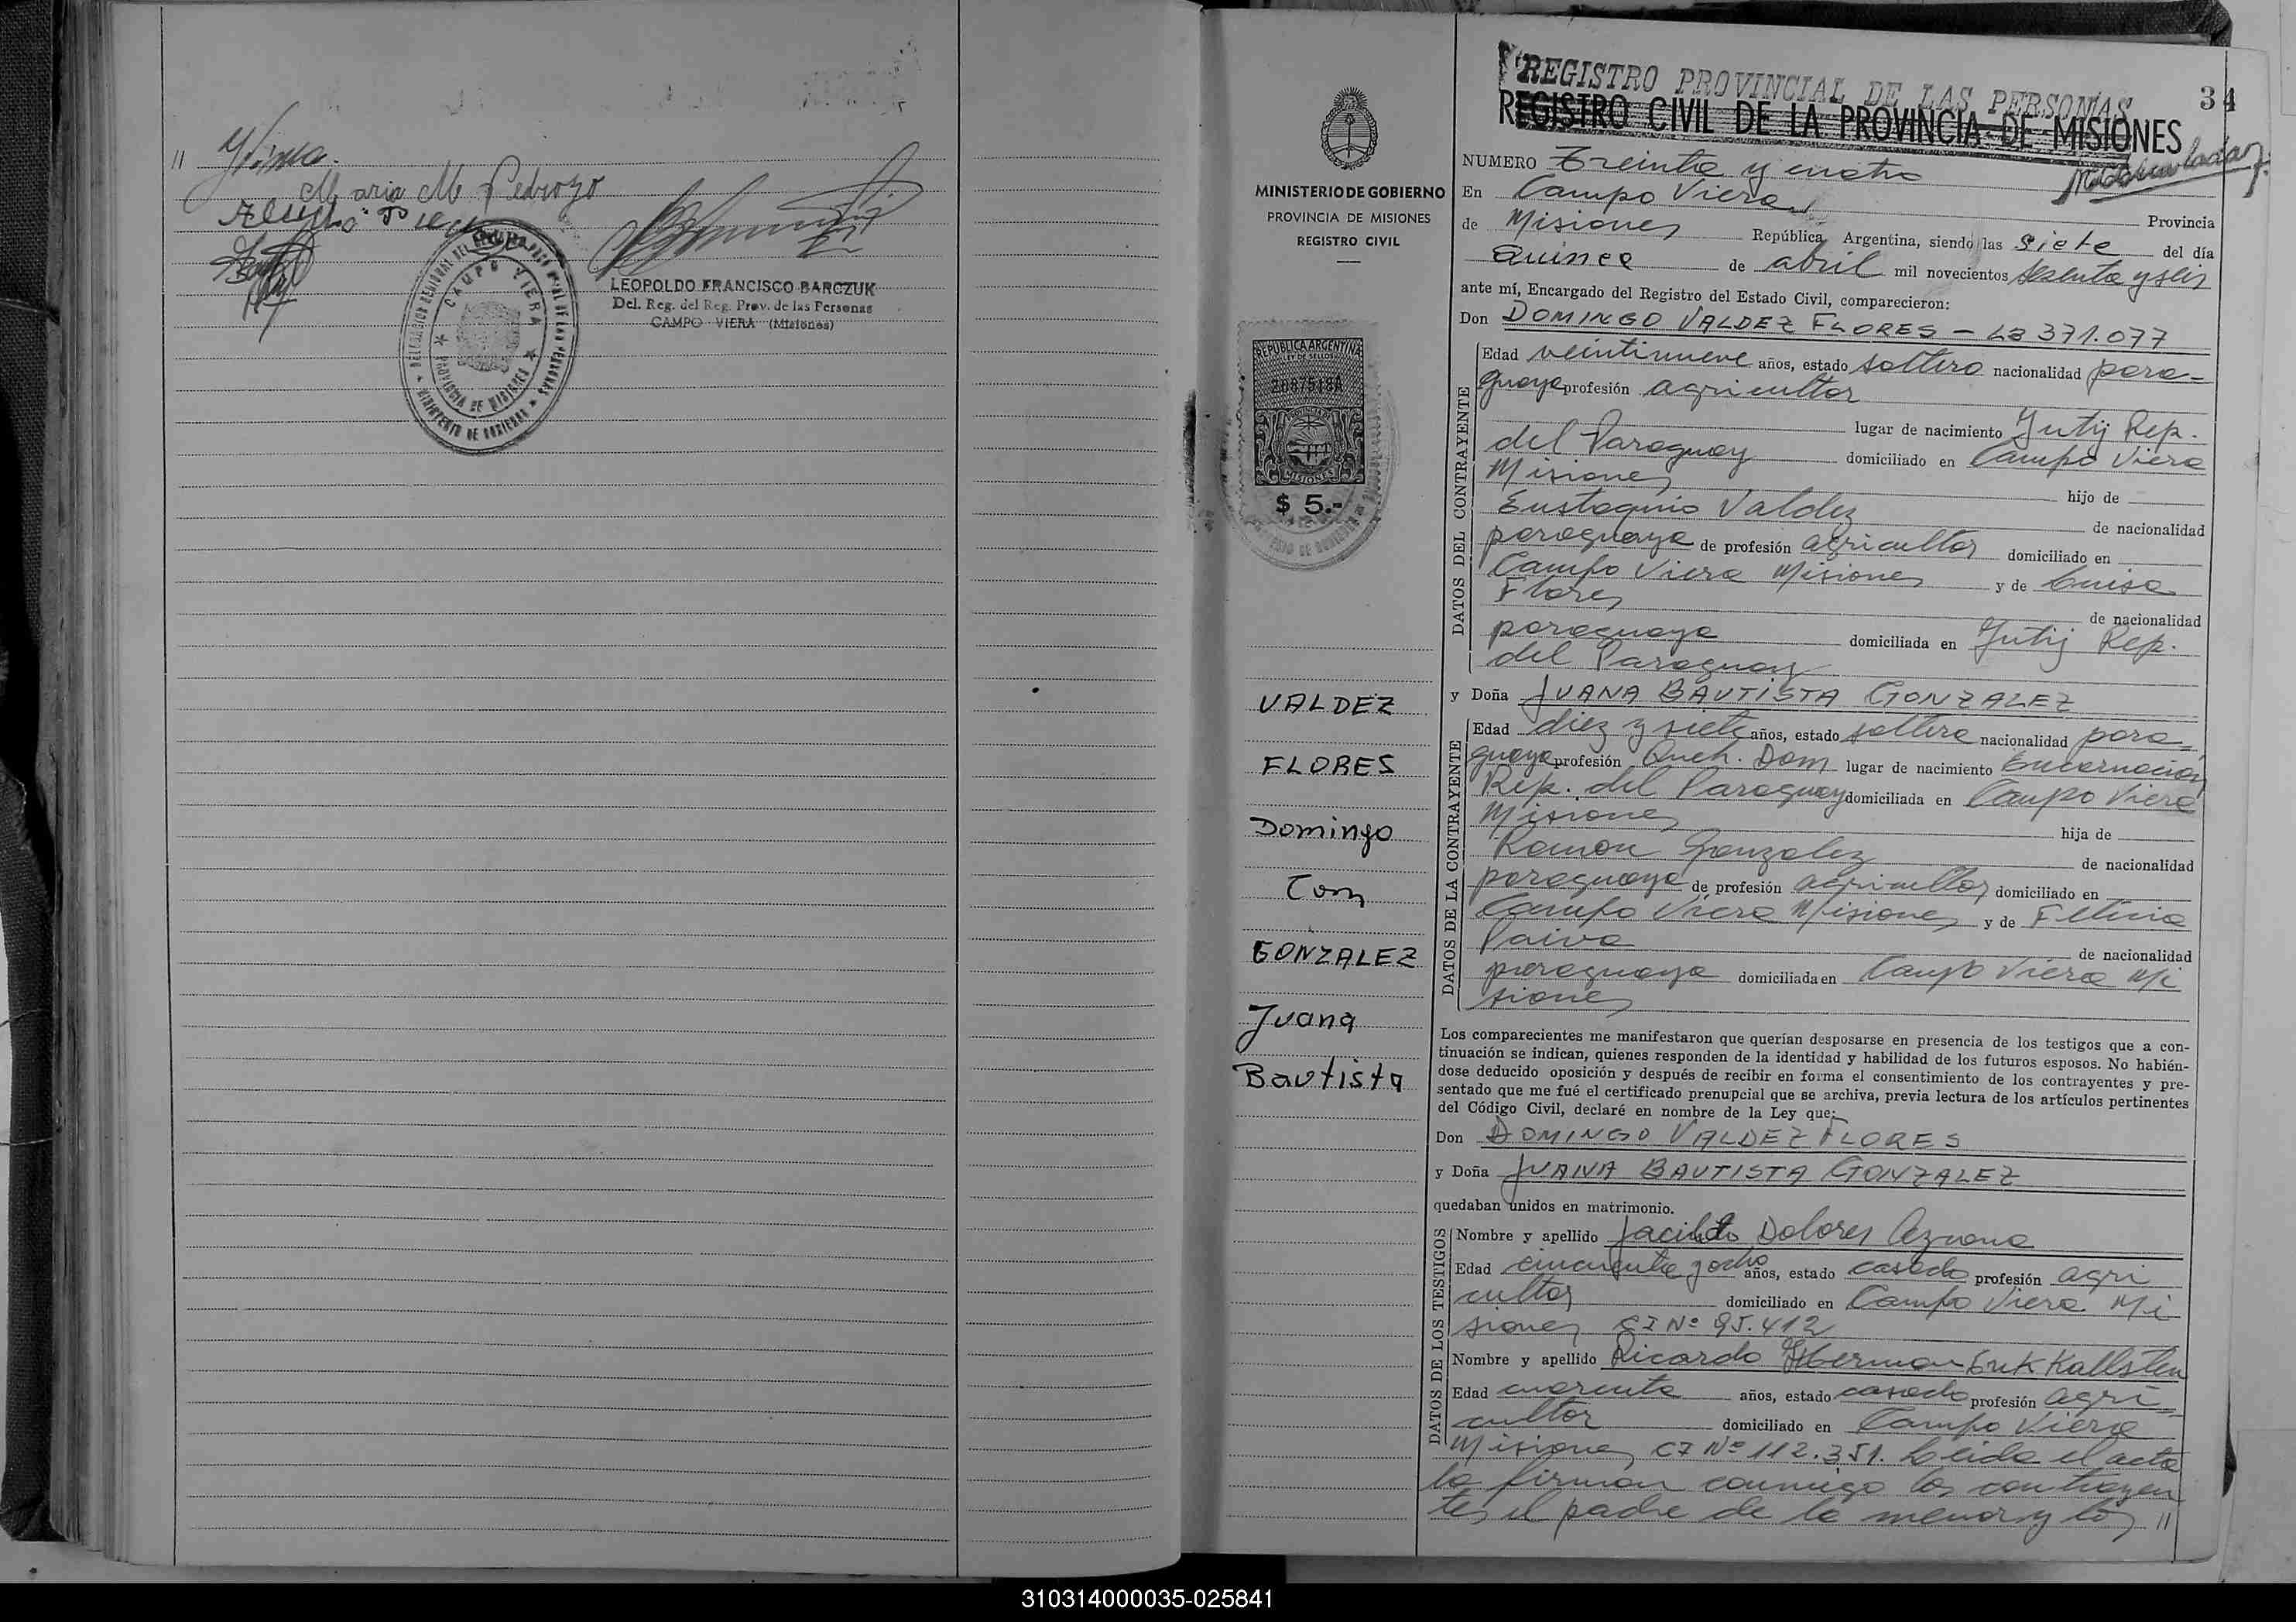 // Yrina.
Maria M Pedrozo
LEOPOLDO FRANCISCO BARCZUK
Del. Reg. del Reg. Prov. de las Personas
CAMPO VIERA (Misiones)
CAMPO VIERA
PROVINCIA DE MISIONES
MINISTERIO DE GOBIERNO
MINISTERIO DE GOBIERNO
PROVINCIA DE MISIONES
REGISTRO CIVIL
REPUBLICA ARGENTINA
LEY DE SELLOS
2087518A
MISIONES
$ 5.-
VALDEZ
FLORES
Domingo
Con
GONZALEZ
Juana
Bautista
REGISTRO PROVINCIAL DE LAS PERSONAS
34
REGISTRO CIVIL DE LA PROVINCIA DE MISIONES
NUMERO Treinta y cuatro
En Campo Viera Provincia
de Misiones República Argentina, siendo las siete del día
Quince de abril mil novecientos sesenta y seis
ante mí, Encargado del Registro del Estado Civil, comparecieron:
Don DOMINGO VALDEZ FLORES - LB 371.077
DATOS DEL CONTRAYENTE
Edad veintinueve años, estado soltero nacionalidad para=
guaya profesión agricultor
lugar de nacimiento Yutij Rep.
del Paraguay domiciliado en Campo Viera
Misiones hijo de
Eustaquio Valdez de nacionalidad
paraguaya de profesión agricultor domiciliado en
Campo Viera Misiones y de Luisa
Flores de nacionalidad
paraguaya domiciliada en Yutij Rep.
del Paraguay
y Doña JUANA BAUTISTA GONZALEZ
DATOS DE LA CONTRAYENTE
Edad diez y siete años, estado soltera nacionalidad para=
guaya profesión Queh. Dom lugar de nacimiento Encarnación
Rep. del Paraguay domiciliada en Campo Viera
Misiones hija de
Ramon Gonzalez de nacionalidad
paraguaya de profesión agricultor domiciliado en
Campo Viera Misiones y de Felicia
Paiva de nacionalidad
paraguaya domiciliada en Campo Viera Mi
siones
Los comparecientes me manifestaron que querían desposarse en presencia de los testigos que a con-
tinuación se indican, quienes responden de la identidad y habilidad de los futuros esposos. No habién-
dose deducido oposición y después de recibir en forma el consentimiento de los contrayentes y pre-
sentado que me fué el certificado prenupcial que se archiva, previa lectura de los artículos pertinentes
del Código Civil, declaré en nombre de la Ley que:
Don DOMINGO VALDEZ FLORES
y Doña JUANA BAUTISTA GONZALEZ
quedaban unidos en matrimonio.
DATOS DE LOS TESTIGOS
Nombre y apellido Jacinto Dolores Aznona
Edad cincuenta y ocho años, estado casado profesión agri
cultor domiciliado en Campo Viera Mi
siones CI Nº 95.412
Nombre y apellido Ricardo Herman Erik Kallsten
Edad cuarenta años, estado casado profesión agri=
cultor domiciliado en Campo Viera
Misiones CI Nº 112.351. Leida el acta
la firman conmigo los contrayen
tes el padre de la menor y los //
310314000035-025841